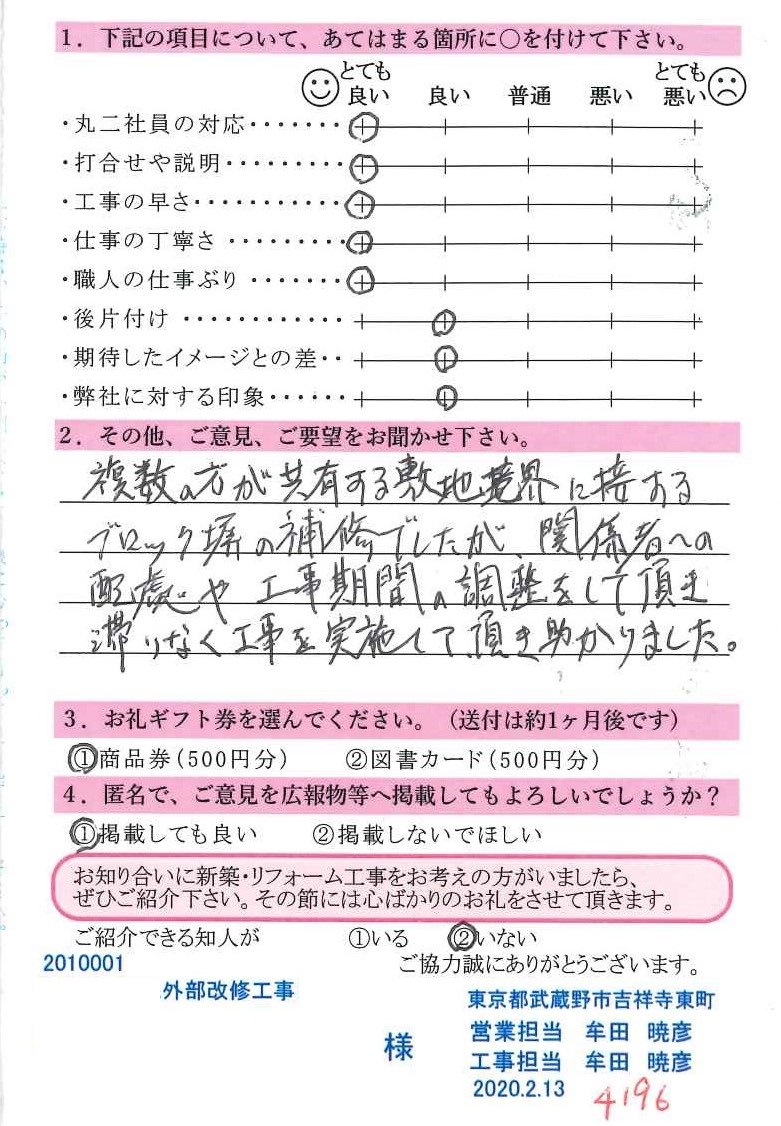 1．下記の項目について、あてはまる箇所に〇を付けて下さい。
とても良い 良い 普通 悪い とても悪い
・丸二社員の対応・・・・・・・
・打合せや説明・・・・・・・・・
・工事の早さ・・・・・・・・・・・
・仕事の丁寧さ・・・・・・・・・
・職人の仕事ぶり・・・・・・・
・後片付け・・・・・・・・・・・・
・期待したイメージとの差・・
・弊社に対する印象・・・・・・
2．その他、ご意見、ご要望をお聞かせ下さい。
複数の方が共有する敷地境界に接する
ブロック塀の補修でしたが、関係者への
配慮や工事期間の調整をして頂き
滞りなく工事を実施して頂き助かりました。
3．お礼ギフト券を選んでください。（送付は約1ヶ月後です）
①商品券（500円分） ②図書カード（500円分）
4．匿名で、ご意見を広報物等へ掲載してもよろしいでしょうか？
①掲載しても良い ②掲載しないでほしい
お知り合いに新築・リフォーム工事をお考えの方がいましたら、
ぜひご紹介下さい。その節には心ばかりのお礼をさせて頂きます。
ご紹介できる知人が ①いる ②いない
2010001 ご協力誠にありがとうございます。
外部改修工事 東京都武蔵野市吉祥寺東町
様 営業担当 牟田 暁彦
工事担当 牟田 暁彦
2020.2.13 4196